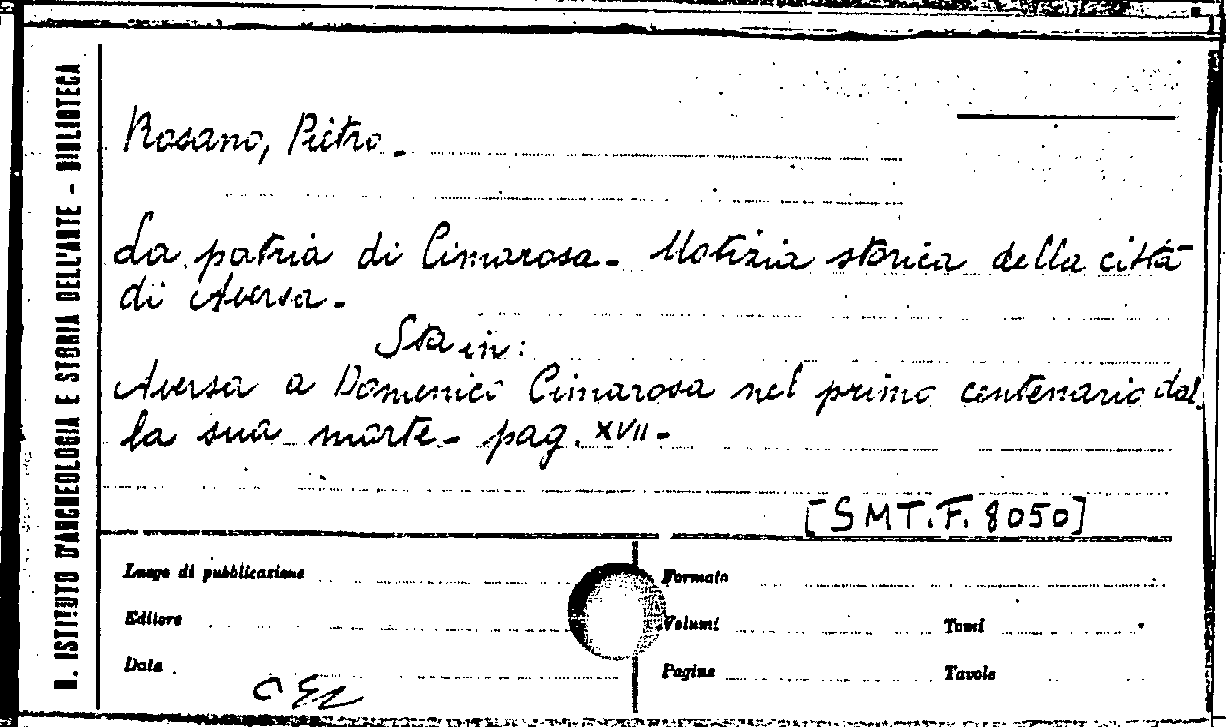 R. ISTITUTO D'ARCHEOLOGIA E STORIA DELL'ARTE - BIBLIOTECA
Rosano, Pietro.
La patria di Cimarosa. Notizia storica della città
di Aversa.
Sta in:
Aversa a Domenico Cimarosa nel primo centenario dal
la sua morte. pag. XVII.
[SMT.F. 8050]
Luogo di pubblicazione
Formato
Editore
Volumi Tomi
Data
Pagine Tavole